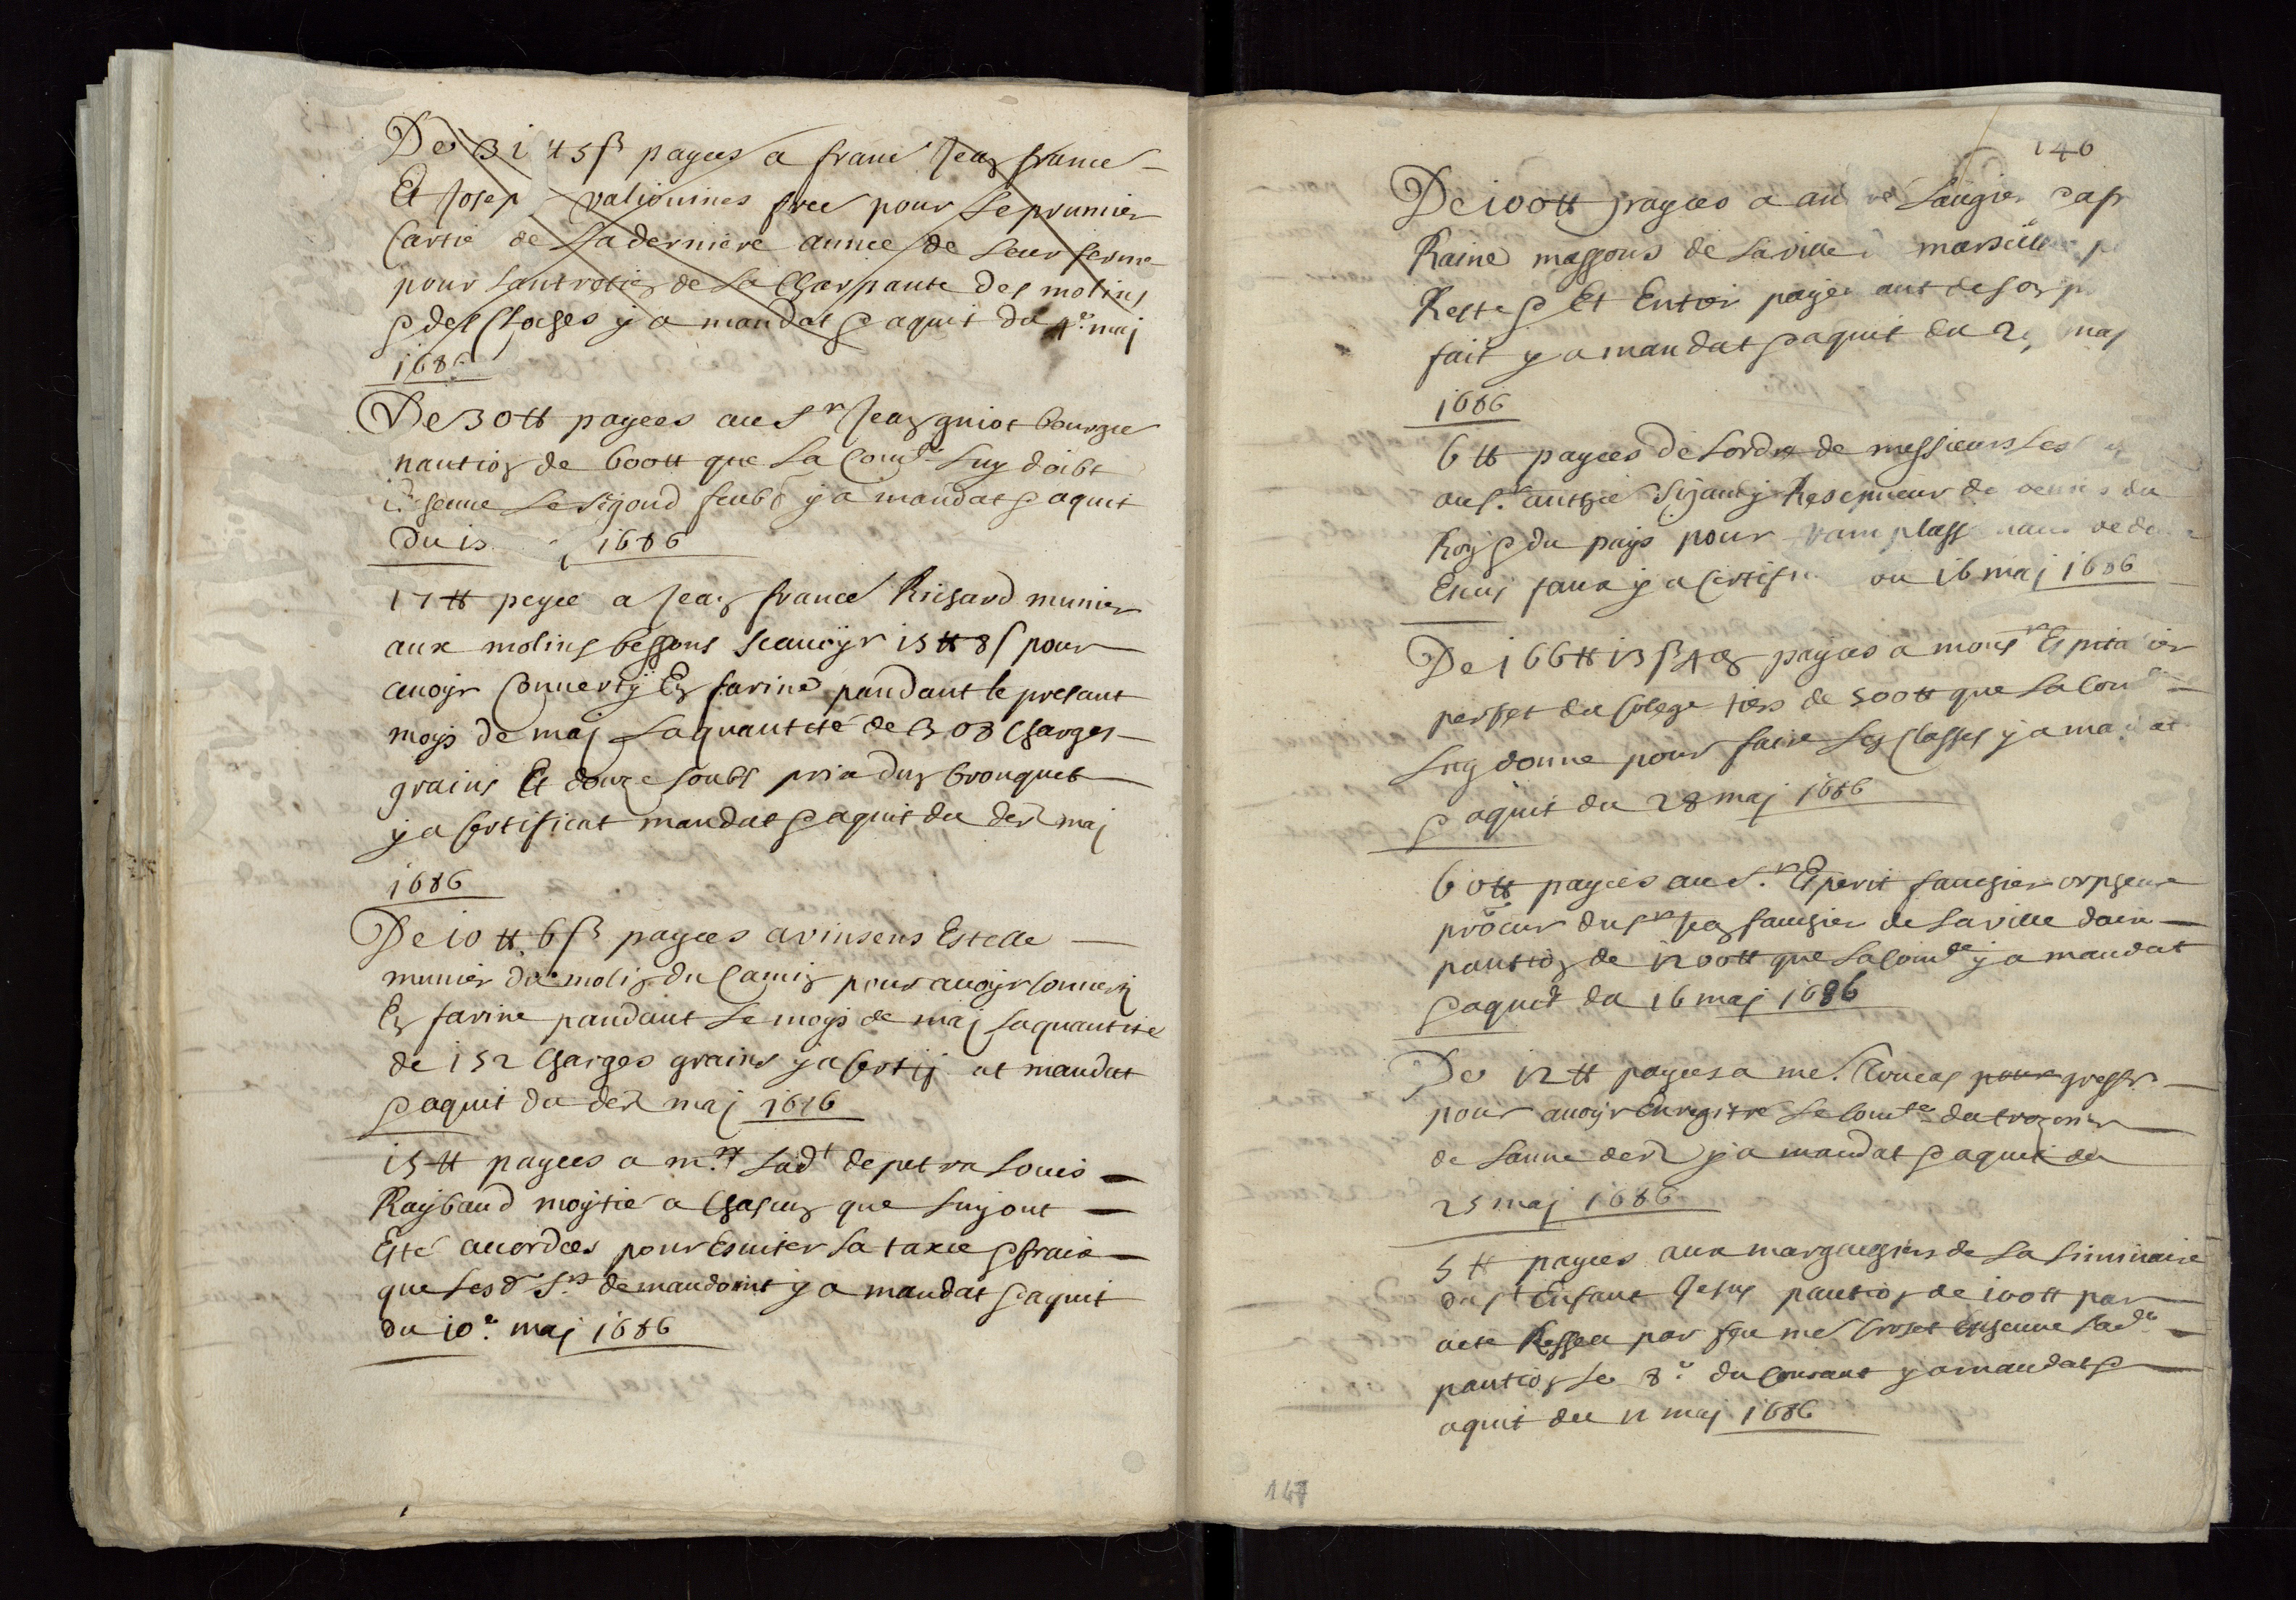 De 31 ₶ 5 ſ payees a franc Jean france
Et Josep valiouines free pour Le prumier
Cartié de La derniere annee de Leur ferme
pour Lantretien de La Charpante des molins
& des Cloches y a mandat & aquit du 4e maj
1686
De 30₶ payees au Sr Jean guiot bourgue
pantion de 600₶ que La Comté Luy doibt
Escheue Le segond y a mandat & aquit
Du 1686
17₶ peyee a Jean france Richard munier
aux molins bessons scauoyr 15₶ 8ſ pour
auoyr Conuerty En farine pandant le presant
moys de maj La quantité de 308 Charges
grains Et douze soubs prix dun brouquet
y a Certificat mandat & aquit du der maj
1686
De 10₶ 6ſ payees a vinsens Estelle
munier du molin du Camin pour auoyr Conuerty
En farine pandant Le moys de maj La quantité
de 152 Charges grains y a Certifi at mandat
& aquit du der maj 1686
15₶ payees a mr Ladt de petra Louis
Raybaud moytié a Chascun que Luy ont
Esté acordees pour Esuiter La taxe & fraix
que Lesd Srs demandoint y a mandat & aquit
du 10e maj 1686
146
De 100₶ payees a an ré Laugier
Raine massons de La ville marseille
Reste & Et Entier paye ant de
fait y a mandat & aquit du 2 maj
1686
6₶ payees de Lordre de messieurs Les
au Sr anthoine Reseueur de du
Roy & du pays pour ramplass
Escus faux y a Certifi du 16 maj 1686
De 166₶ 13 ſ 4 d payees a mons Espita ier
perfet du Colege tiers de 500₶ que La Com
Luy donne pour faire Les Classes y a ma at
& aquit du 28 maj 1686
60₶ payees au Sr Esperit fauchier orpheure
procur du Sr Jean fauchier de La ville daix
pantion de 1200₶ que La Comté y a mandat
& aquit du 16 maj 1686
De 12₶ payees a me. pour greffr
pour auoyr Enregitré Le Comte du trezorier
de Lanne der y a mandat & aquit du
25 maj 1686
5₶ payees aux margailliers de La Liminaire
du St Enfant Jesus pantion de 100₶ par
acte Resseu par feu me Croset Escheue Lade
pantion Le 8e du Courant y a mandat &
aquit du 12 maj 1686
147